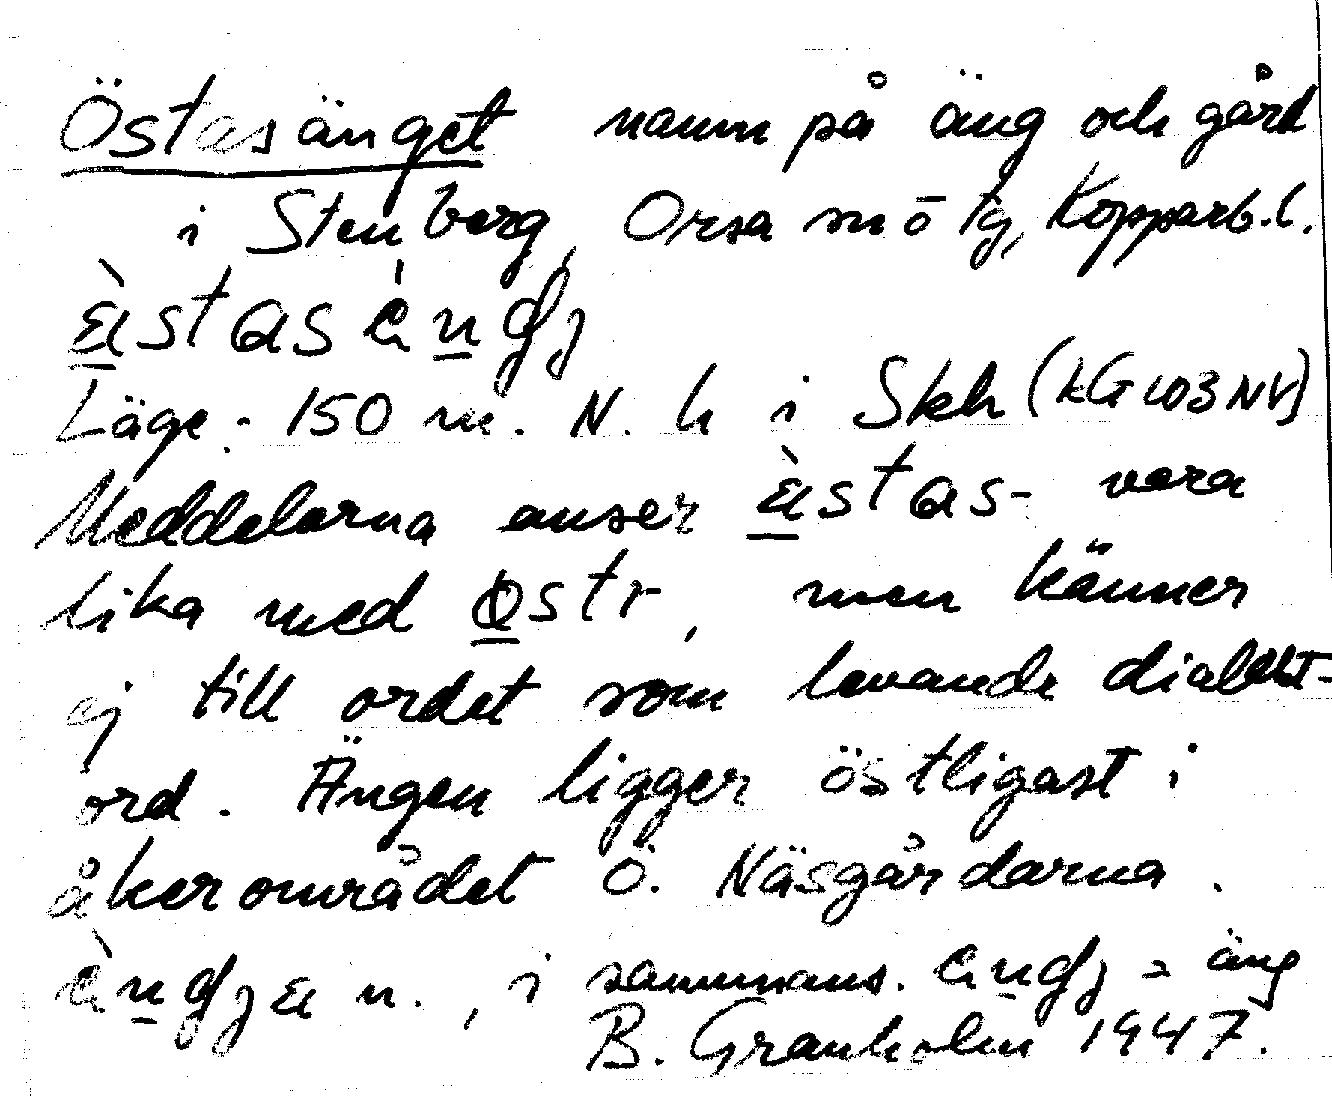 Östasänget namn på äng och gård
i Stenberg, Orsa sn ö tg, Kopparb. l.
Läge: 150 m. N. h i Skh (kG 103 NV)
Meddelarna anser vara
lika med östr, men känner
ej till ordet som levande dialekt-
ord. Ängen ligger östligast i
åkerområdet Ö. Näsgårdarna.
n., i sammans. = äng
B. Granholm 1947.